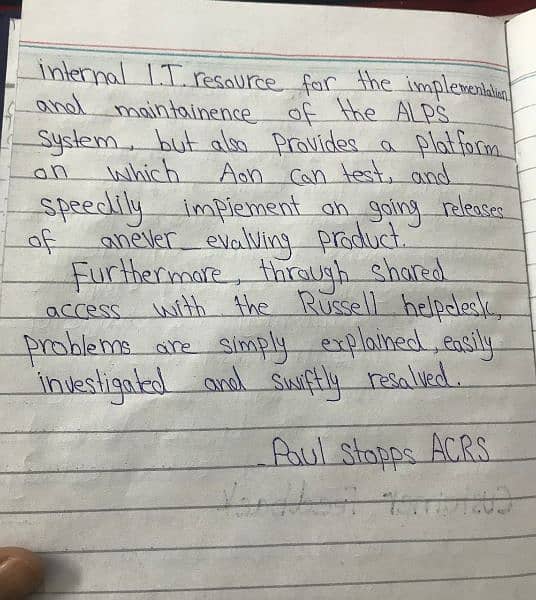 internal I.T. resource for the implementation
and maintainence of the ALPS
system, but also provides a platform
on which Aon can test, and
speedily impiement on going releases
of anever-evalving product.
Furthermore, through shared
access with the Russell helpdesk,
problems are simply explained, easily
investigated and swiftly resalved.
-Paul Stopps ACRS